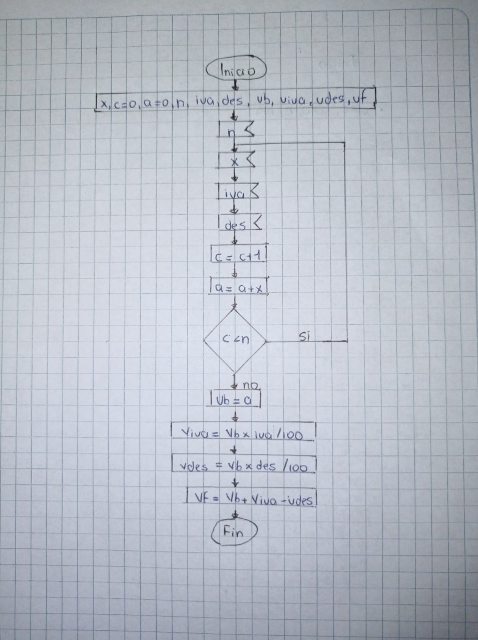 Inicio
x, c=0, a=0, n, iva, des, vb, viva, vdes, vf
n
x
iva
des
c = c+1
a = a+x
c<n
si
no
Vb = a
Viva = Vb x iva /100
vdes = vb x des /100
Vf = Vb + Viva - vdes
Fin